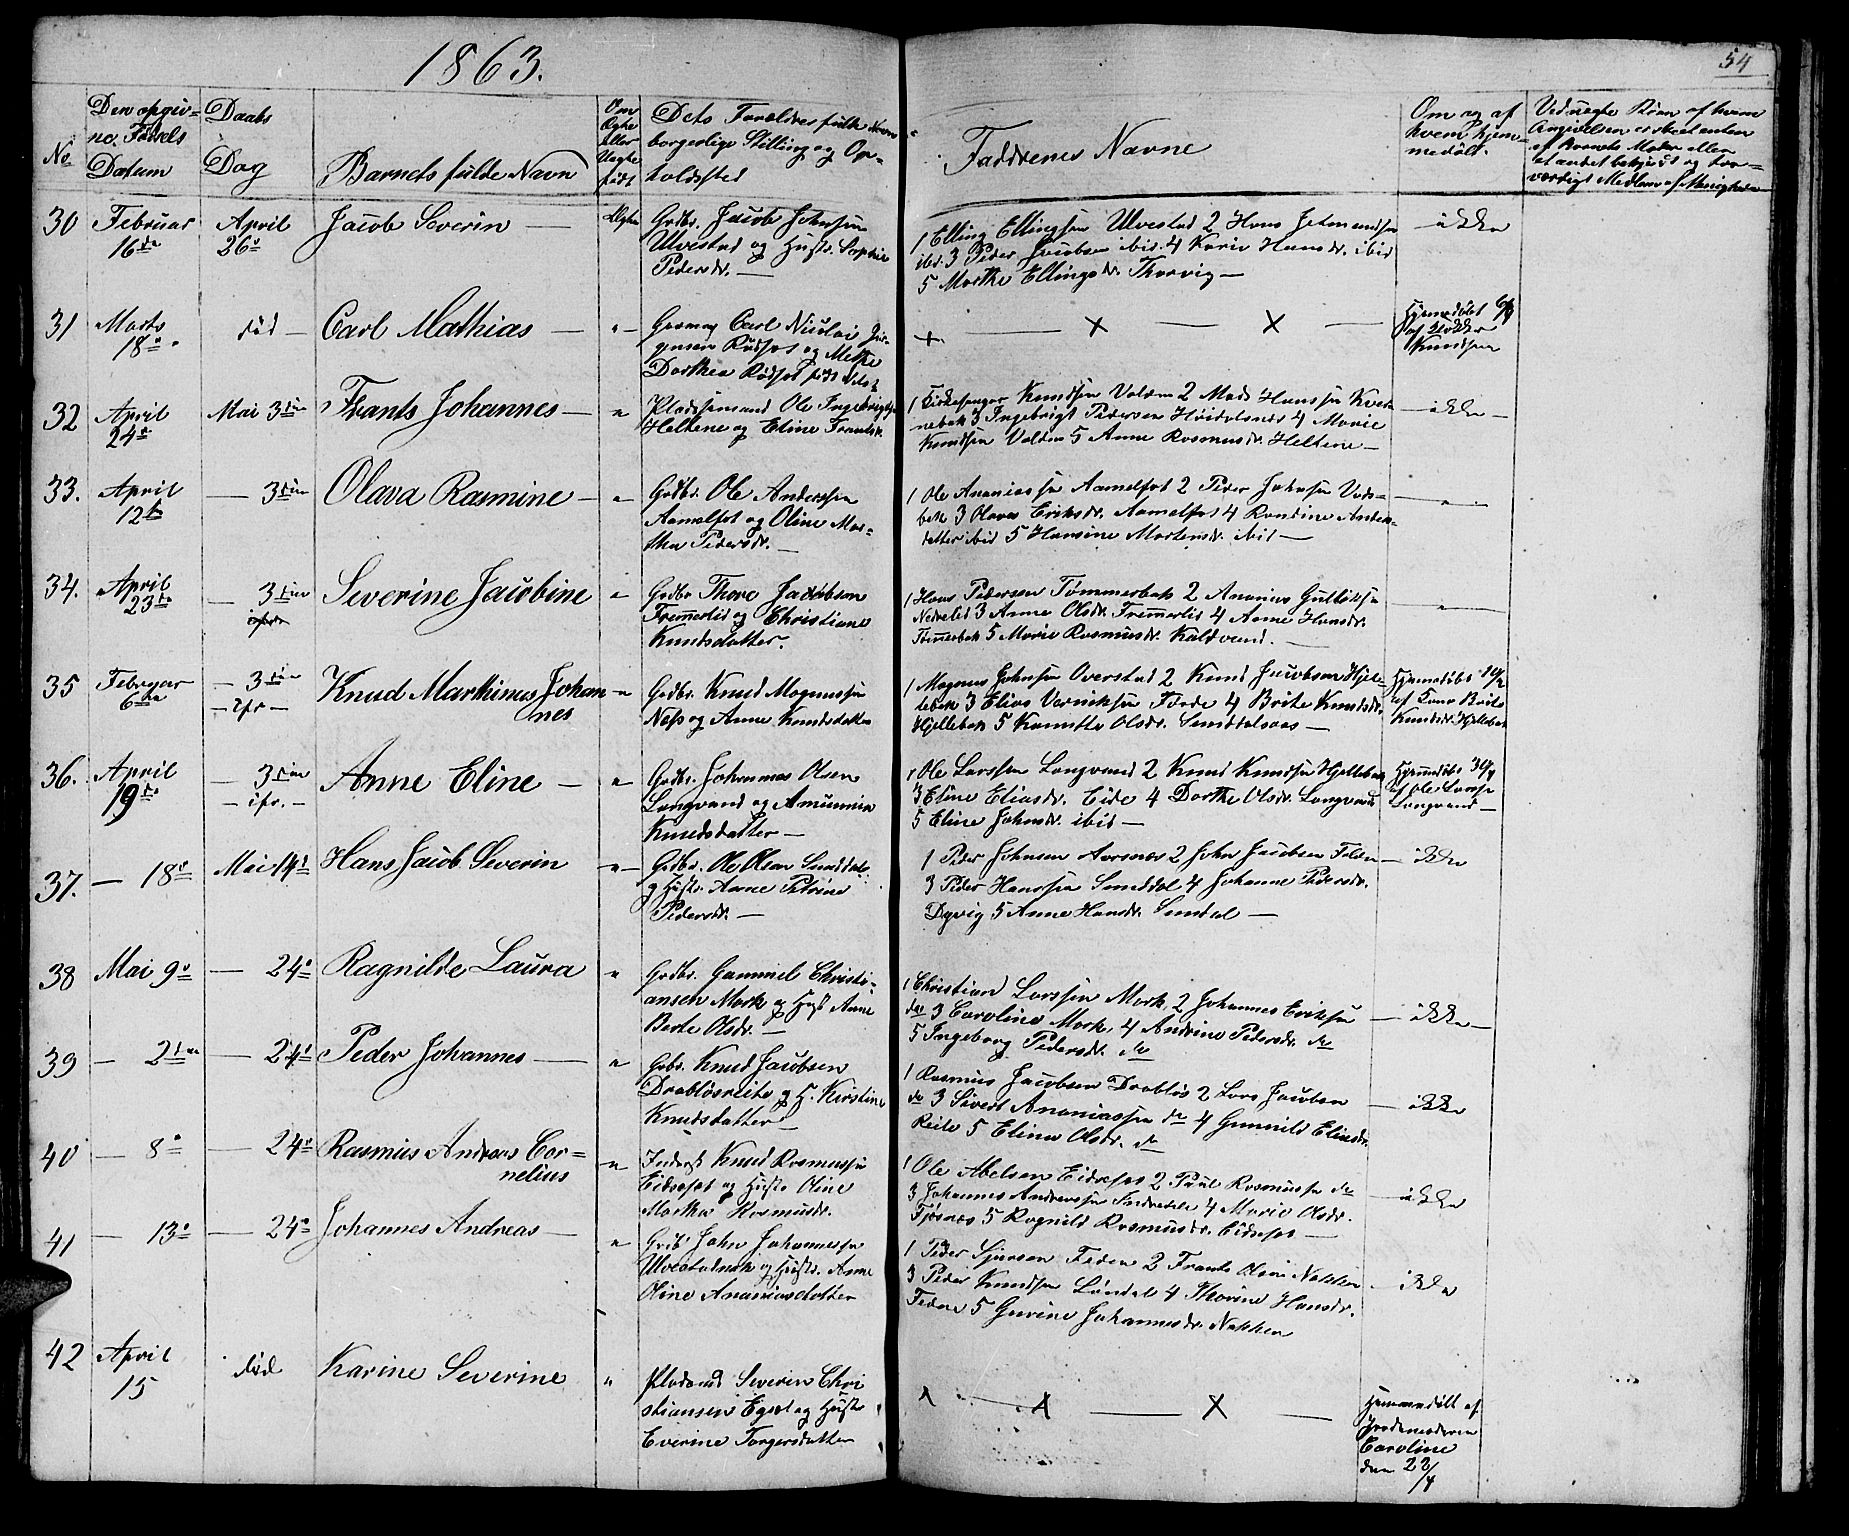 1863.
54
No
Den opgiv-
ne Fødsels
Datum
Daabs
Dag
Barnets fulde Navn
Om
Ægte
eller
Uægte
født
Dets Forældres fulde Navn
borgerlige Stilling og Op-
holdssted
Faddrenes Navne
Om og af
hvem hjem-
medøbt.
af Barnets Moder eller
30 Februar 16de April 26de Jacob Severin — Ægte
Grdbr. Jacob Johnsen
Ulvestad og Hustr. Sophie
Pedersdr. —
1 Elling Ellingsen Ulvestad 2 Hans
ibd. 3 Peder Jacobsen ibid. 4 Karie Hansdr. ibid
5 Marthe Ellingsdr. Thorvig —
— ikke
31 Marts 18de død — Carl Mathias — " —
Carl Nicolai Jør-
gensen Rødset og Methe
Dorthea Rødset født
+ — X — X —
Hjemmedøbt
af
Knudsen
32 April 24de Mai 3die Frants Johannes — "
Pladsemand Ole Ingebrigtsen
Heltene og Eline Frantsdr.
1 Kirkesanger Knudsen Volden 2 Mads Hanssen Kven-
nebak 3 Ingebrigt Pedersen 4 Marie
Knudsen Volden 5 Anne Rasmusdr. Heltene —
— ikke —
33. April 12te — 3die Olava Rasmine — "
Grdbr. Ole Anderssen
Aamelfot og Oline Mar-
tha Pedersdr. —
1 Ole Ananiassen Aamelfot 2 Peder Johnsen Vads-
bek 3 Olava Eriksdr. Aamelfot 4 Randine Anders-
datter ibid 5 Hansine Mortensdr. ibid —
— " —
34. April 23de — 3die Severine Jacobine "
Grdbr Thore Jacobsen
Fremmerlid og Christiane
Knudsdatter.
1 Hans Pedersen Tømmerbak 2 Ananias
Nedrelid 3 Anne Olsdr. Fremmerlid 4 Anne Hansdr.
Tømmerbak 5 Marie Rasmusdr. Kaldvand. —
— " —
35 Februar 6te — 3die — ifr — Knud Marthinus Johan
nes — " —
Grdbr. Knud Magnussen
Næss og Anne Knudsdatter
1 Magnus Johnsen Overstad 2 Knud Jacobsen Hjel-
lebak 3 Elias 4 Brite Knudsdr.
Hjellebak 5 Olsdr. —
Hjemmedøbt
af Kone Brite
Knudsdr. Hjellebak
36. April 19de — 3die — ifr. — Anne Eline — "
Grdbr. Johannes Olsen
Langvand og
Knudsdatter —
1 Ole Larssen Langvand 2 Knud Knudsen Hjellebak
3 Eline Eliasdr. Eide 4 Dorthe Olsdr. Langvand
5 Eline Johnsdr. ibid —
Hjemmedøbt
af Ole Larssen
Langvand —
37. — 18de Mai 14de Hans Jacob Severin — " —
Grdbr. Ole Olsen Sunddal
og Hustr. Anne Petrine
Pedersdr. —
1 Peder Johnsen Aarsnes 2 John Jacobsen Folden
3 Peder Hanssen Sunddal 4 Johanne Pedersdr.
Dyrvig 5 Anne Hansdr. Sundal —
— ikke
38 Mai 9de — 24de Ragnilde Laura "
Grdbr. Gammel Christi-
ansen Mork og Hust. Anne
Berte Olsdr. —
1 Christian Larssen Mork 2 Johannes Eriksen
do 3 Caroline Mork, 4 Andrine Pedersdr. do
5 Ingeborg Pedersdr. do
— ikke —
39 — 2den — 24de Peder Johannes — "
Grbr. Knud Jacobsen
Drabløsreite og H. Kirstine
Knudsdatter —
1 Rasmus Jacobsen Drabløs 2 Lars Jacobsen
do 3 Sivert Ananiassen do 4 Gunnild Eliasdr.
Reite 5 Eline Olsdr. do
— ikke
40 — 8de — 24de Rasmus Andreas Cor-
nelius — "
Knud Rasmussen
Eidsfot og Hustr Oline
Martha Rasmusdr.
1 Ole Abelsen Eidsfot 2 Paul Rasmussen do
3 Johannes Andreassen 4 Marie Olsdr.
5 Ragnild Rasmusdr. Eidsfot —
— ikke
41 — 13de — 24de Johannes Andreas — "
John Johannessen
og Hustr. Anne
Oline Ananiasdatter
1 Peder Sjursen 2 Frants Olsen Nakken
3 Peder Knudsen Løndal 4 Thorine Hansdr.
5 Gurine Johannesdr. Nakken
— ikke
42 April 15 død Karine Severine "
Pladsmd Severin Chri
stiansen Egset og Hustr
Everine Torgersdatter
X — X — X —
Hjemmedøbt af
Jordemoderen
Caroline
den 22/4